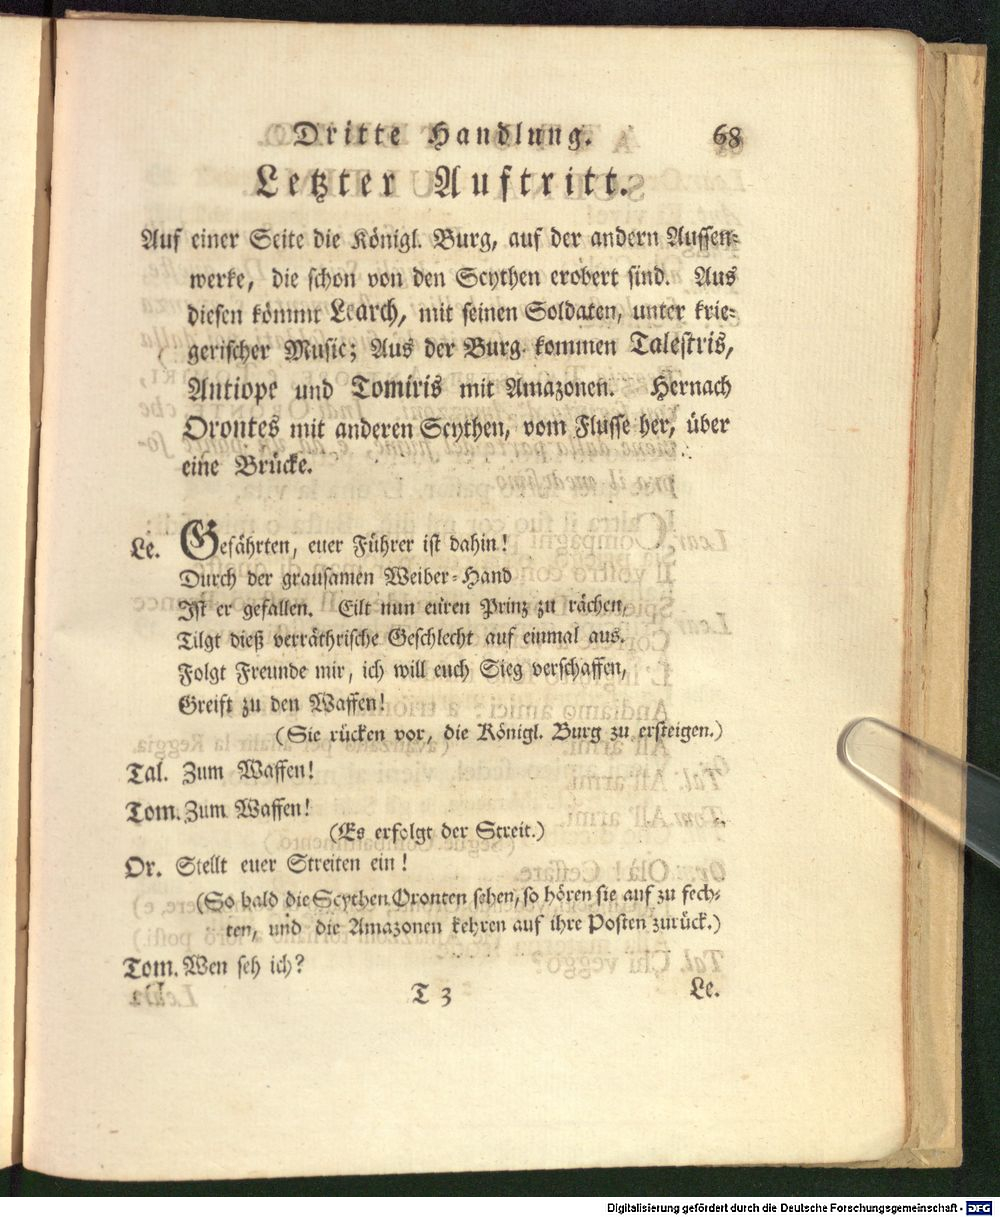 Dritte Handlung. 68
Letzter Auftritt.
Auf einer Seite die Königl. Burg, auf der andern Aussen-
werke, die schon von den Scythen erobert sind. Aus
diesen kömmt Learch, mit seinen Soldaten, unter krie-
gerischer Music; Aus der Burg kommen Talestris,
Antiope und Tomiris mit Amazonen. Hernach
Orontes mit anderen Scythen, vom Flusse her, über
eine Brücke.
Le. Gefährten, euer Führer ist dahin!
Durch der grausamen Weiber-Hand
Ist er gefallen. Eilt nun euren Prinz zu rächen,
Tilgt dieß verräthrische Geschlecht auf einmal aus.
Folgt Freunde mir, ich will euch Sieg verschaffen,
Greift zu den Waffen!
(Sie rücken vor, die Königl. Burg zu ersteigen.)
Tal. Zum Waffen!
Tom. Zum Waffen!
(Es erfolgt der Streit.)
Or. Stellt euer Streiten ein!
(So bald die Scythen Oronten sehen, so hören sie auf zu fech-
ten, und die Amazonen kehren auf ihre Posten zurück.)
Tom. Wen seh ich?
T 3 Le.
Digitalisierung gefördert durch die Deutsche Forschungsgemeinschaft - DFG